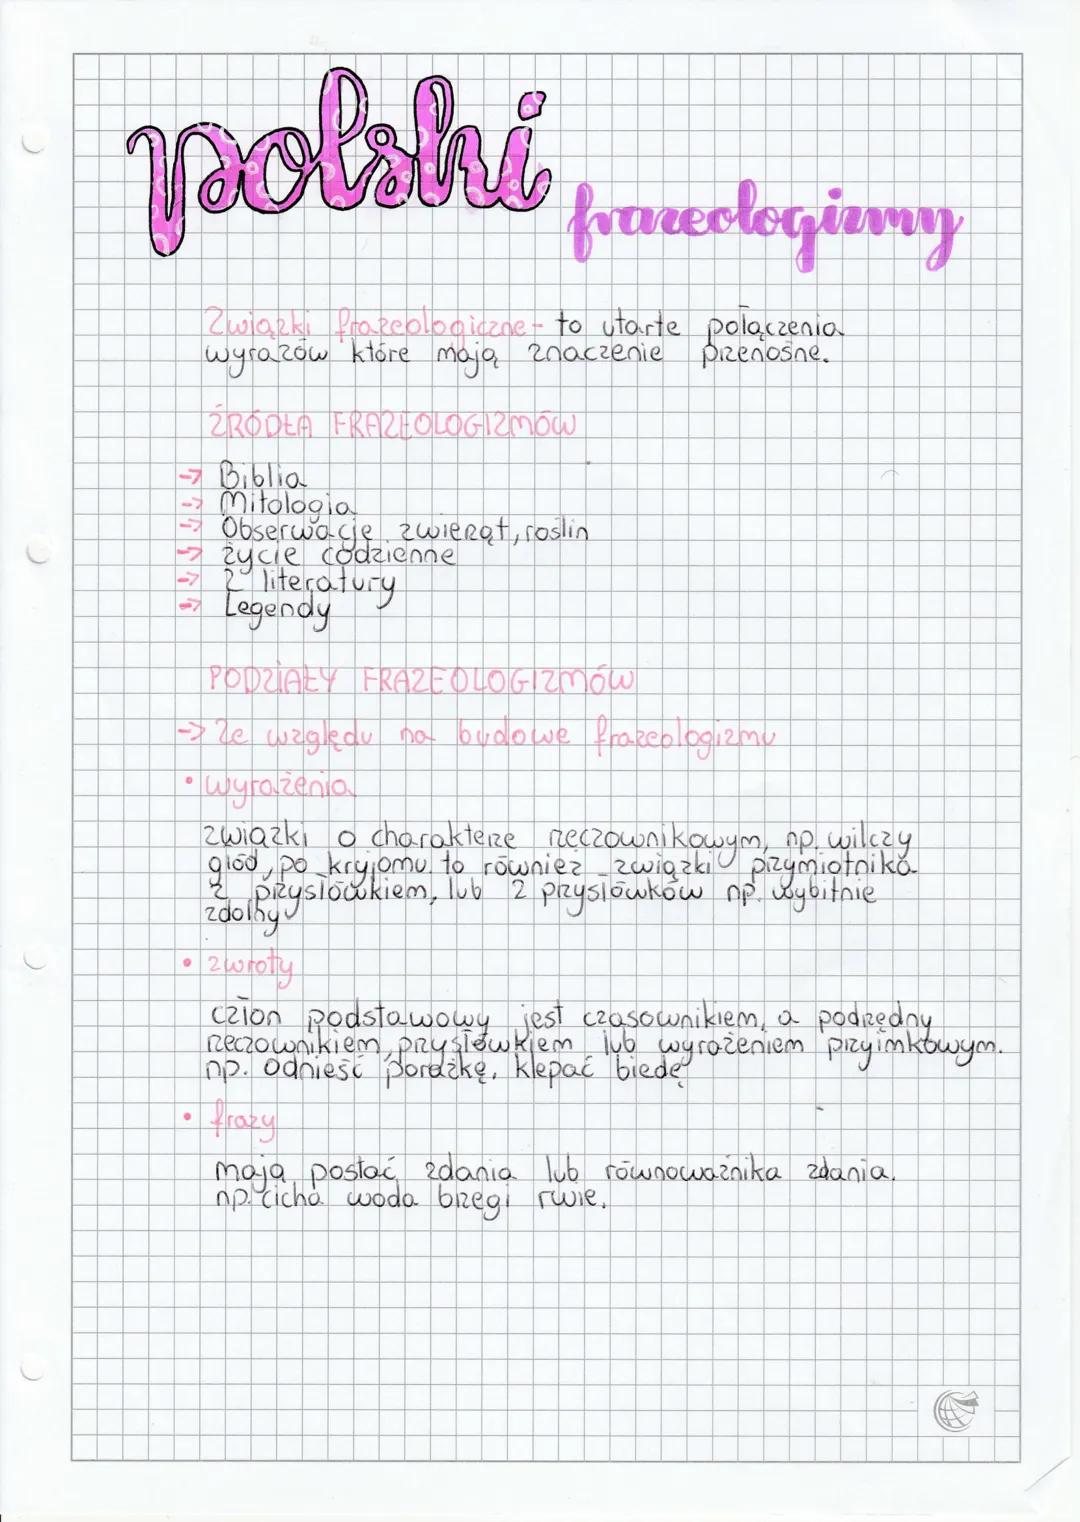 polski
frazeologizmy
Związki frazeologiczne - to utarte połączenia
wyrazów które mają znaczenie przenośne.
ŹRÓDŁA FRAZEOLOGIZMÓW
→ Biblia
→ Mitologia
→ Obserwacje zwierząt, roślin
→ życie codzienne
→ Z literatury
→ Legendy
PODZIAŁY FRAZEOLOGIZMÓW
→ Ze względu na budowe frazeologizmu
• wyrażenia
związki o charakterze rzeczownikowym, np. wilczy
głód, po kryjomu. to również związki przymiotnika
z przysłówkiem, lub 2 przysłówków np. wybitnie
zdolny
• zwroty
człon podstawowy jest czasownikiem, a podrzędny
rzeczownikiem, przysłówkiem lub wyrażeniem przyimkowym.
np. odnieść porażkę, klepać biedę
• frazy
mają postać zdania lub równoważnika zdania.
np. cicha woda brzegi rwie.